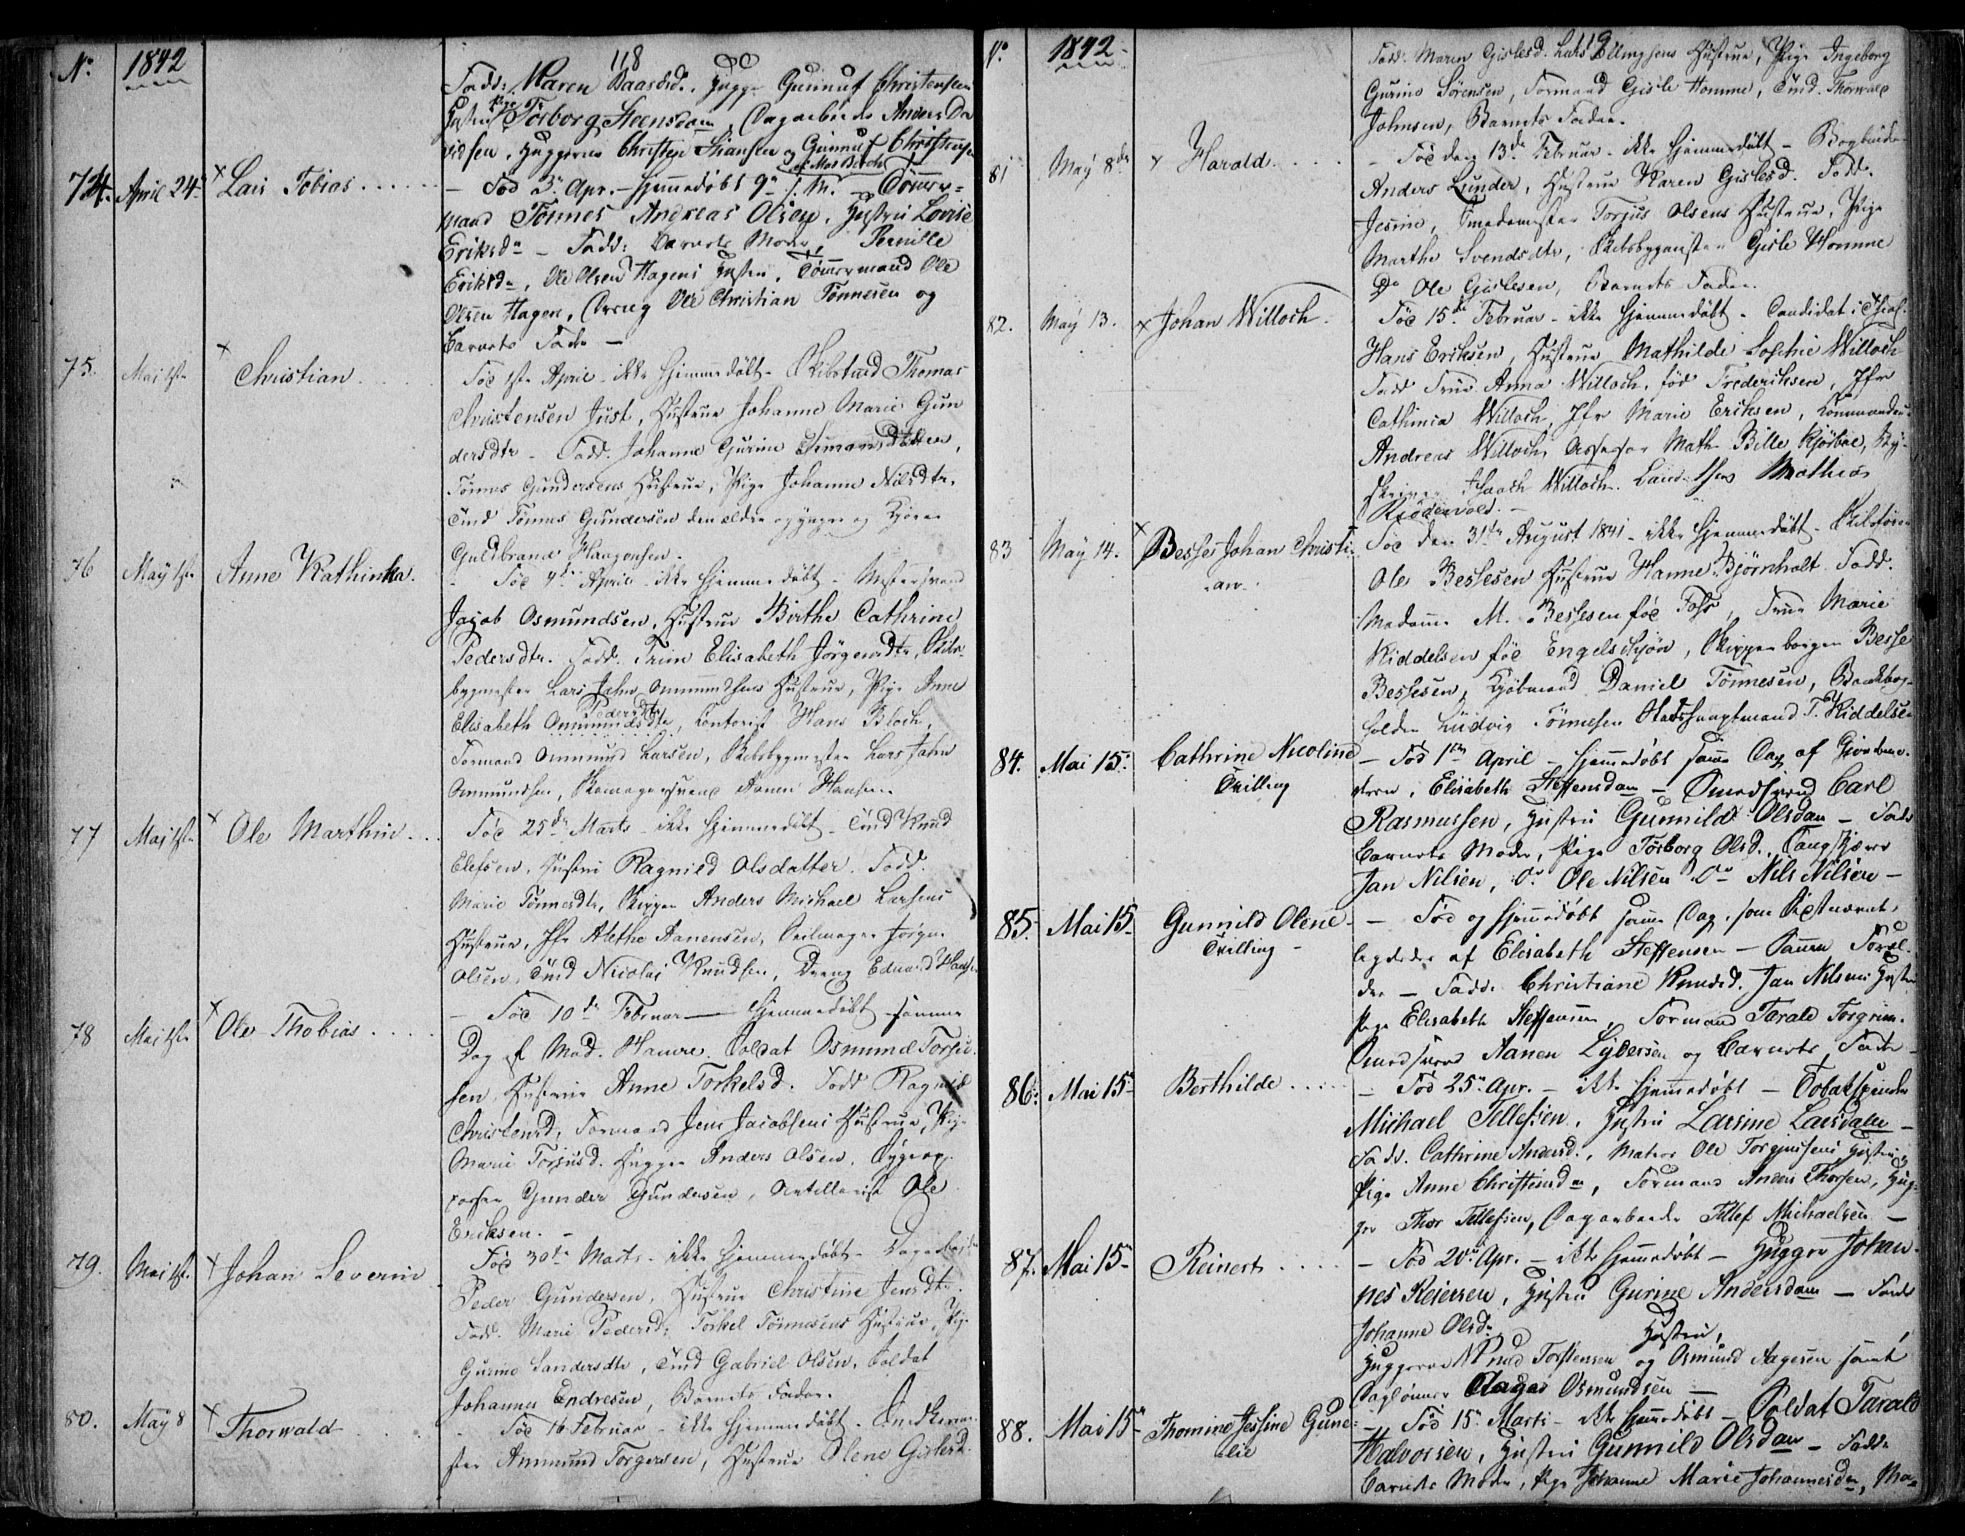 No 1842
118
Fadd: Maren Baasdr. Hugger Gunnuf Christensen
Hustru Pige Torborg Steensdatr, Dagarbeider Anders Da
vidsen, Huggerne Christen Hansen og Gunnuf Christensen
74. April 24 × Lars Tobias
af Mad. Birch
– Fød 3. Apr. – hjemmedøbt 9. s. M. – Tømmer-
mand Tønnes Andreas Olsen, Hustru Lovise
Eriksdr – Fadd: Barnets Moder, Pernille
Eriksdr, Ole Olsen Hagens Hustru, Tømmermand Ole
Olsen Hagen, Dreng Ole Christian Tønnesen og
Barnets Fader –
75. Maj 1ste × Christian
Fød 1ste April – ikke hjemmedøbt – Thomas
Christensen Just, Hustrue Johanne Marie Gun
dersdtr – Fadd. Johanne Gurine Simonsdatter,
Tønnes Gundersens Hustrue, Pige Johanne Nilsdtr,
Tind Tønnes Gundersen den eldre og yngre og
Guldbrand Haagensen.
76 Maÿ 1ste Anne Kathinka.
– Fød 4de April – ikke hjemmedøbt – Mestersvend
Jacob Osmundsen, Hustrue Birthe Cathrine
Pedersdtr. Fadd. Trine Elisabeth Jörgensdtr, Skibs-
bygmester Lars Jahn Ommundsens Hustrue, Pige Anne
Pedersdtr
Elisabeth Ommundsdtr, Contorist Hans Bloch,
Formand Ommund Larsen, Skibsbygmester Lars Jahn
Ommundsen, Skomagersvend Hansen.
77 Maj 1ste × Ole Marthin
Fød 25de Marts – ikke hjemmedøbt – Tind Knud
Elefsen, Hustru Ragnild Olsdatter. Fadd.
Marie Tönnesdtr, Skipper Anders Michael Larsens
Hustrue, Jfr Alethe Aanensen, Seilmager Jörgen
Olsen, Tind Nicolai Knudsen, Dreng Eduard
78 Maj 1ste × Ole Thobias
– Fød 10de Februar – hjemmedøbt samme
Dag af Mad. Hauere. Soldat Osmund Torju
sen, Hustrue Anne Torkelsd. Fadd Ragnild
Christensd, Formand Jens Jacobsens Hustrue, Pige
Marie Torjusd. Hugger Anders Olsen,
Gunder Gundersen, Artillerist Ole
Eriksen. –
79. Maj 1ste × Johan Severin
Fød 30te Marts – ikke hjemmedøbt – Dagarbeider
Peder Gundersen, Hustrue Christine Jensdtr.
Fadd. Marie Pedersd, Torkel Tönnesens Hustrue, Pige
Gurine Sandersdtr, Tind Gabriel Olsen, Soldat
Johannes Endresen, Barnets Fader.
80. Maÿ 8 × Thorwald
– Fød 16 Februar – ikke hjemmedøbt –
ster Ammund Torgersen, Hustrue Olene Gislesd.
No 1842.
119
Fadd. Maren Gislesd. Lars Ellingsens Hustrue, Pige Ingeborg
Gurine Sörensen, Formand Gisle Homme, Tind. Thorwald
Johnsen, Barnets Fader.
81 Maÿ 8de × Harald
– Fød den 13de Februar – ikke hjemmedøbt – Bogbinder
Anders Lunder, Hustrue Karen Gislesd. Fadd.
Jesine, Smedemester Torjus Olsens Hustrue, Pige
Marthe Svendsdtr, Skibsbygmester Gisle Homme
Do Ole Gislesen, Barnets Fader.
82. Maÿ 13. × Johan Willoch.
Fød 15de Februar – ikke hjemmedøbt – Candidat i Theol.
Hans Eriksen, Hustrue Mathilde Sophie Willoch
Fadd Frue Anna Willoch, fød Frederiksen, Jfr
Cathinca Willoch, Jfr Marie Eriksen, Commandeur
Andreas Willoch, Assessor Math. Bille Kjörboe, By-
skriver Isaach Willoch. Mathias
Kiödevold. –
83 Maÿ 14. × Besses Johan Christi-
an.
Fød den 31te August 1841 – ikke hjemmedøbt –
Ole Bessesen Hustrue Hanne Bjørnholt. Fadd.
Madame M. Bessesen fød Foss, Frue Marie
Kiddelsen fød Engelskjön, Skipperborger Besse
Bessesen, Kjöbmand Daniel Tönnesen, Bankbog-
holder Ludvig Tönnesen Stadshauptmand T. Kiddelsen
84. Mai 15. Cathrine Nicoline
Tvilling
– Fød 1ste April – hjemmedøbt samme Dag af Gjordemo-
deren, Elisabeth Steffensdatr – Smedsvend Carl
Rasmussen, Hustru Gunnild Olsdatr – Fadd
Barnets Moder, Pige Torborg Olsd.,
Jan Nilsen, Do Ole Nilsen Do Nils Nilsen –
85. Mai 15. Gunnild Olene
Tvilling –
– Fød og hjemmedøbt samme Dag, som
af Elisabeth Steffensen – Samme Foræl-
dre – Fadd: Christiane Knudsd. Jan Nilsens Hustru
Pige Elisabeth Steffensen, Formand Tarald Torgrim.
Smedsvend Aanen Lydersen og Barnets Fader –
86. Mai 15. Berthilde
– Fød 25. Apr. – ikke hjemmedøbt – Tobakspinder
Michael Tellefsen, Hustru Larsine Larsdatr –
Fadd. Cathrine Andersd., Matros Ole Torgiusens Hustru,
Pige Anne Christensdr, Formand Anders Thorsen, Hug-
ger Thor Tellefsen, Dagarbeider Tellef Michaelsen –
87. Mai 15. Reinert
– Fød 20. Apr. – ikke hjemmedøbt – Hugger Johan-
nes Reiersen, Hustru Gurine Andersdatr – Fadd
Johanne Olsdr,
Hustru,
Huggerne Knud Torstensen og Osmund Aagesen samt
Daglønner Aage Osmundsen –
88. Mai 15. Thomine Jessine Gune-
lie
– Fød 15. Marts – ikke hjemmedøbt – Soldat Tarald
Halvorsen, Hustru Gunnild Olsdatr – Fadd:
Barnets Moder, Pige Johanne Marie Johannesdr, Ma-